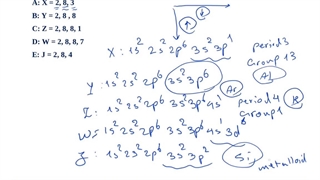 A: X = 2, 8, 3
B: Y = 2, 8, 8
C: Z = 2, 8, 8, 1
D: W = 2, 8, 8, 7
E: J = 2, 8, 4
X: 1s² 2s² 2p⁶ 3s² 3p¹ period 3
Group 13
Al
Y: 1s² 2s² 2p⁶ 3s² 3p⁶
Ar
Z: 1s² 2s² 2p⁶ 3s² 3p⁶ 4s¹ period 4
group 1
K
W = 1s² 2s² 2p⁶ 3s² 3p⁶ 4s¹ 3d⁶
J: 1s² 2s² 2p⁶ 3s² 3p² Si
metalloid